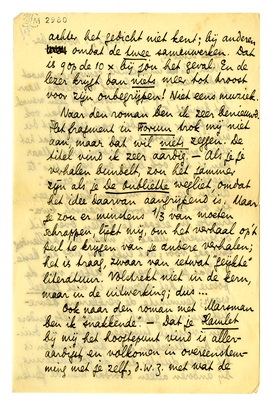 M 2980
achter het gedicht niet kent; bij anderen
omdat de twee samenwerken. Dat
is 9 op de 10 x bij jou het geval. En de
lezer krijgt dan niets mee, tot troost
voor zijn onbegrijpen! Niet eens muziek.
Naar den roman ben ik zeer benieuwd.
Het fragment in Forum trok mij niet
aan, maar dat wil niets zeggen. De
titel vind ik zeer aardig. — Als je je
verhalen bundelt, zou het jammer
zijn als je De Oubliette wegliet, omdat
het idee daarvan aangrijpend is. Maar
je zou er minstens 1/3 van moeten
schrappen, lijkt mij, om het verhaal op 't
peil te krijgen van je andere verhalen;
het is traag, zwaar van ietwat "leukte"
literatuur. Volstrekt niet in de kern,
maar in de uitwerking; dus ...
Ook naar den roman met Marsman
ben ik snakkende. — Dat je Hamlet
bij mij het hoogtepunt vind is aller-
aardigst en volkomen in overeenstem-
ming met je zelf, d.w.z. met wat de